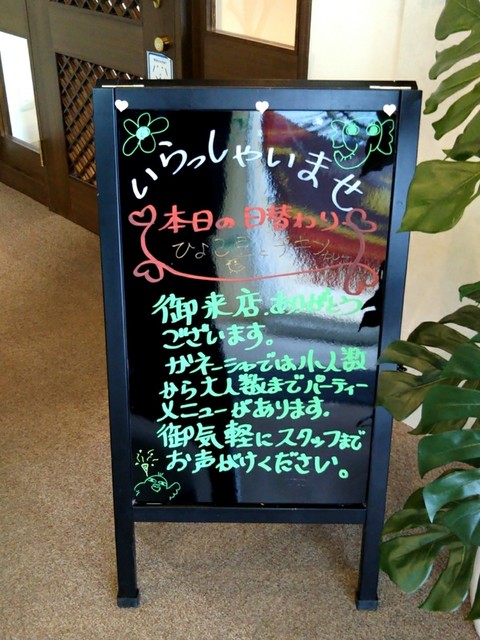 いらっしゃいませ
本日の日替わり
ひよこ豆とチキン
御来店、ありがとう
ございます。
ガネーシャでは小人数
から大人数までパーティー
メニューがあります。
御気軽にスタッフまで
お声がけください。